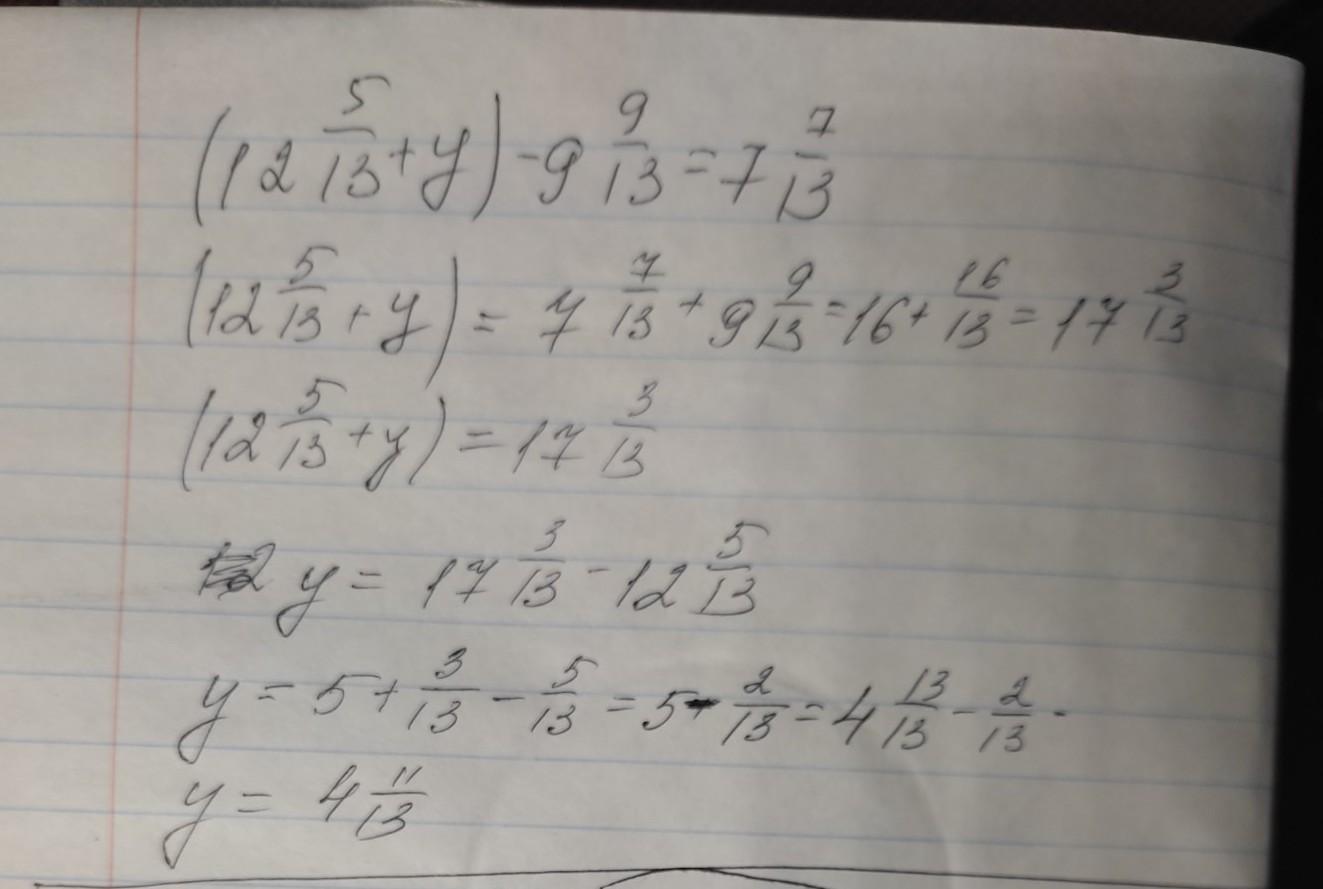 (12 5/13 + y) - 9 9/13 = 7 7/13
(12 5/13 + y) = 7 7/13 + 9 9/13 = 16 + 16/13 = 17 3/13
(12 5/13 + y) = 17 3/13
y = 17 3/13 - 12 5/13
y = 5 + 3/13 - 5/13 = 5 - 2/13 = 4 13/13 - 2/13 -
y = 4 11/13